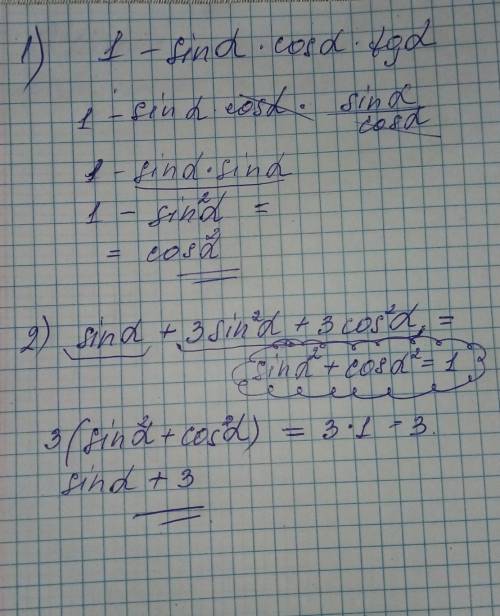 1) 1 - sinα · cosα · tgα
1 - sinα · cosα · sinα/cosα
1 - sinα · sinα
1 - sin²α =
= cos²α
2) sinα + 3sin²α + 3cos²α, =
sinα² + cosα² = 1
3(sin²α + cos²α) = 3·1 = 3.
sinα + 3